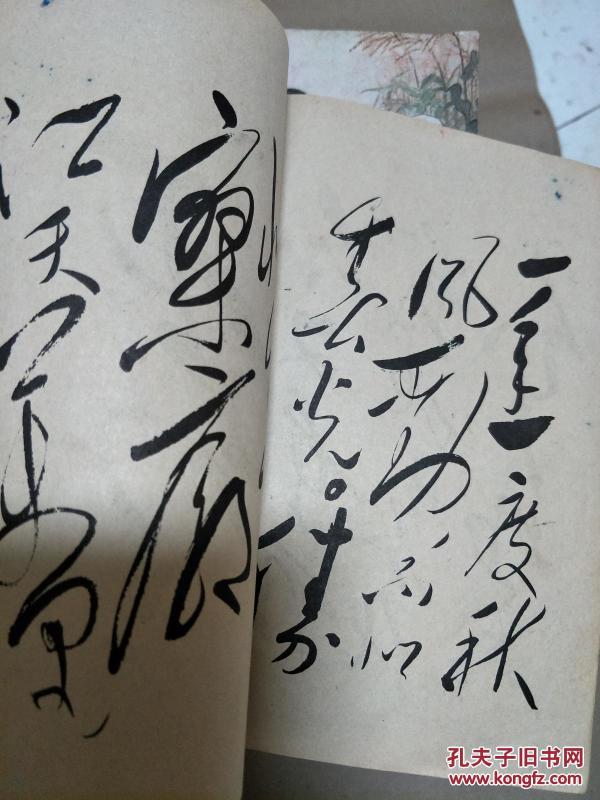 一年一度秋
风劲不似
春光。胜似
寥廓
江天万里
孔夫子旧书网
www.kongfz.com